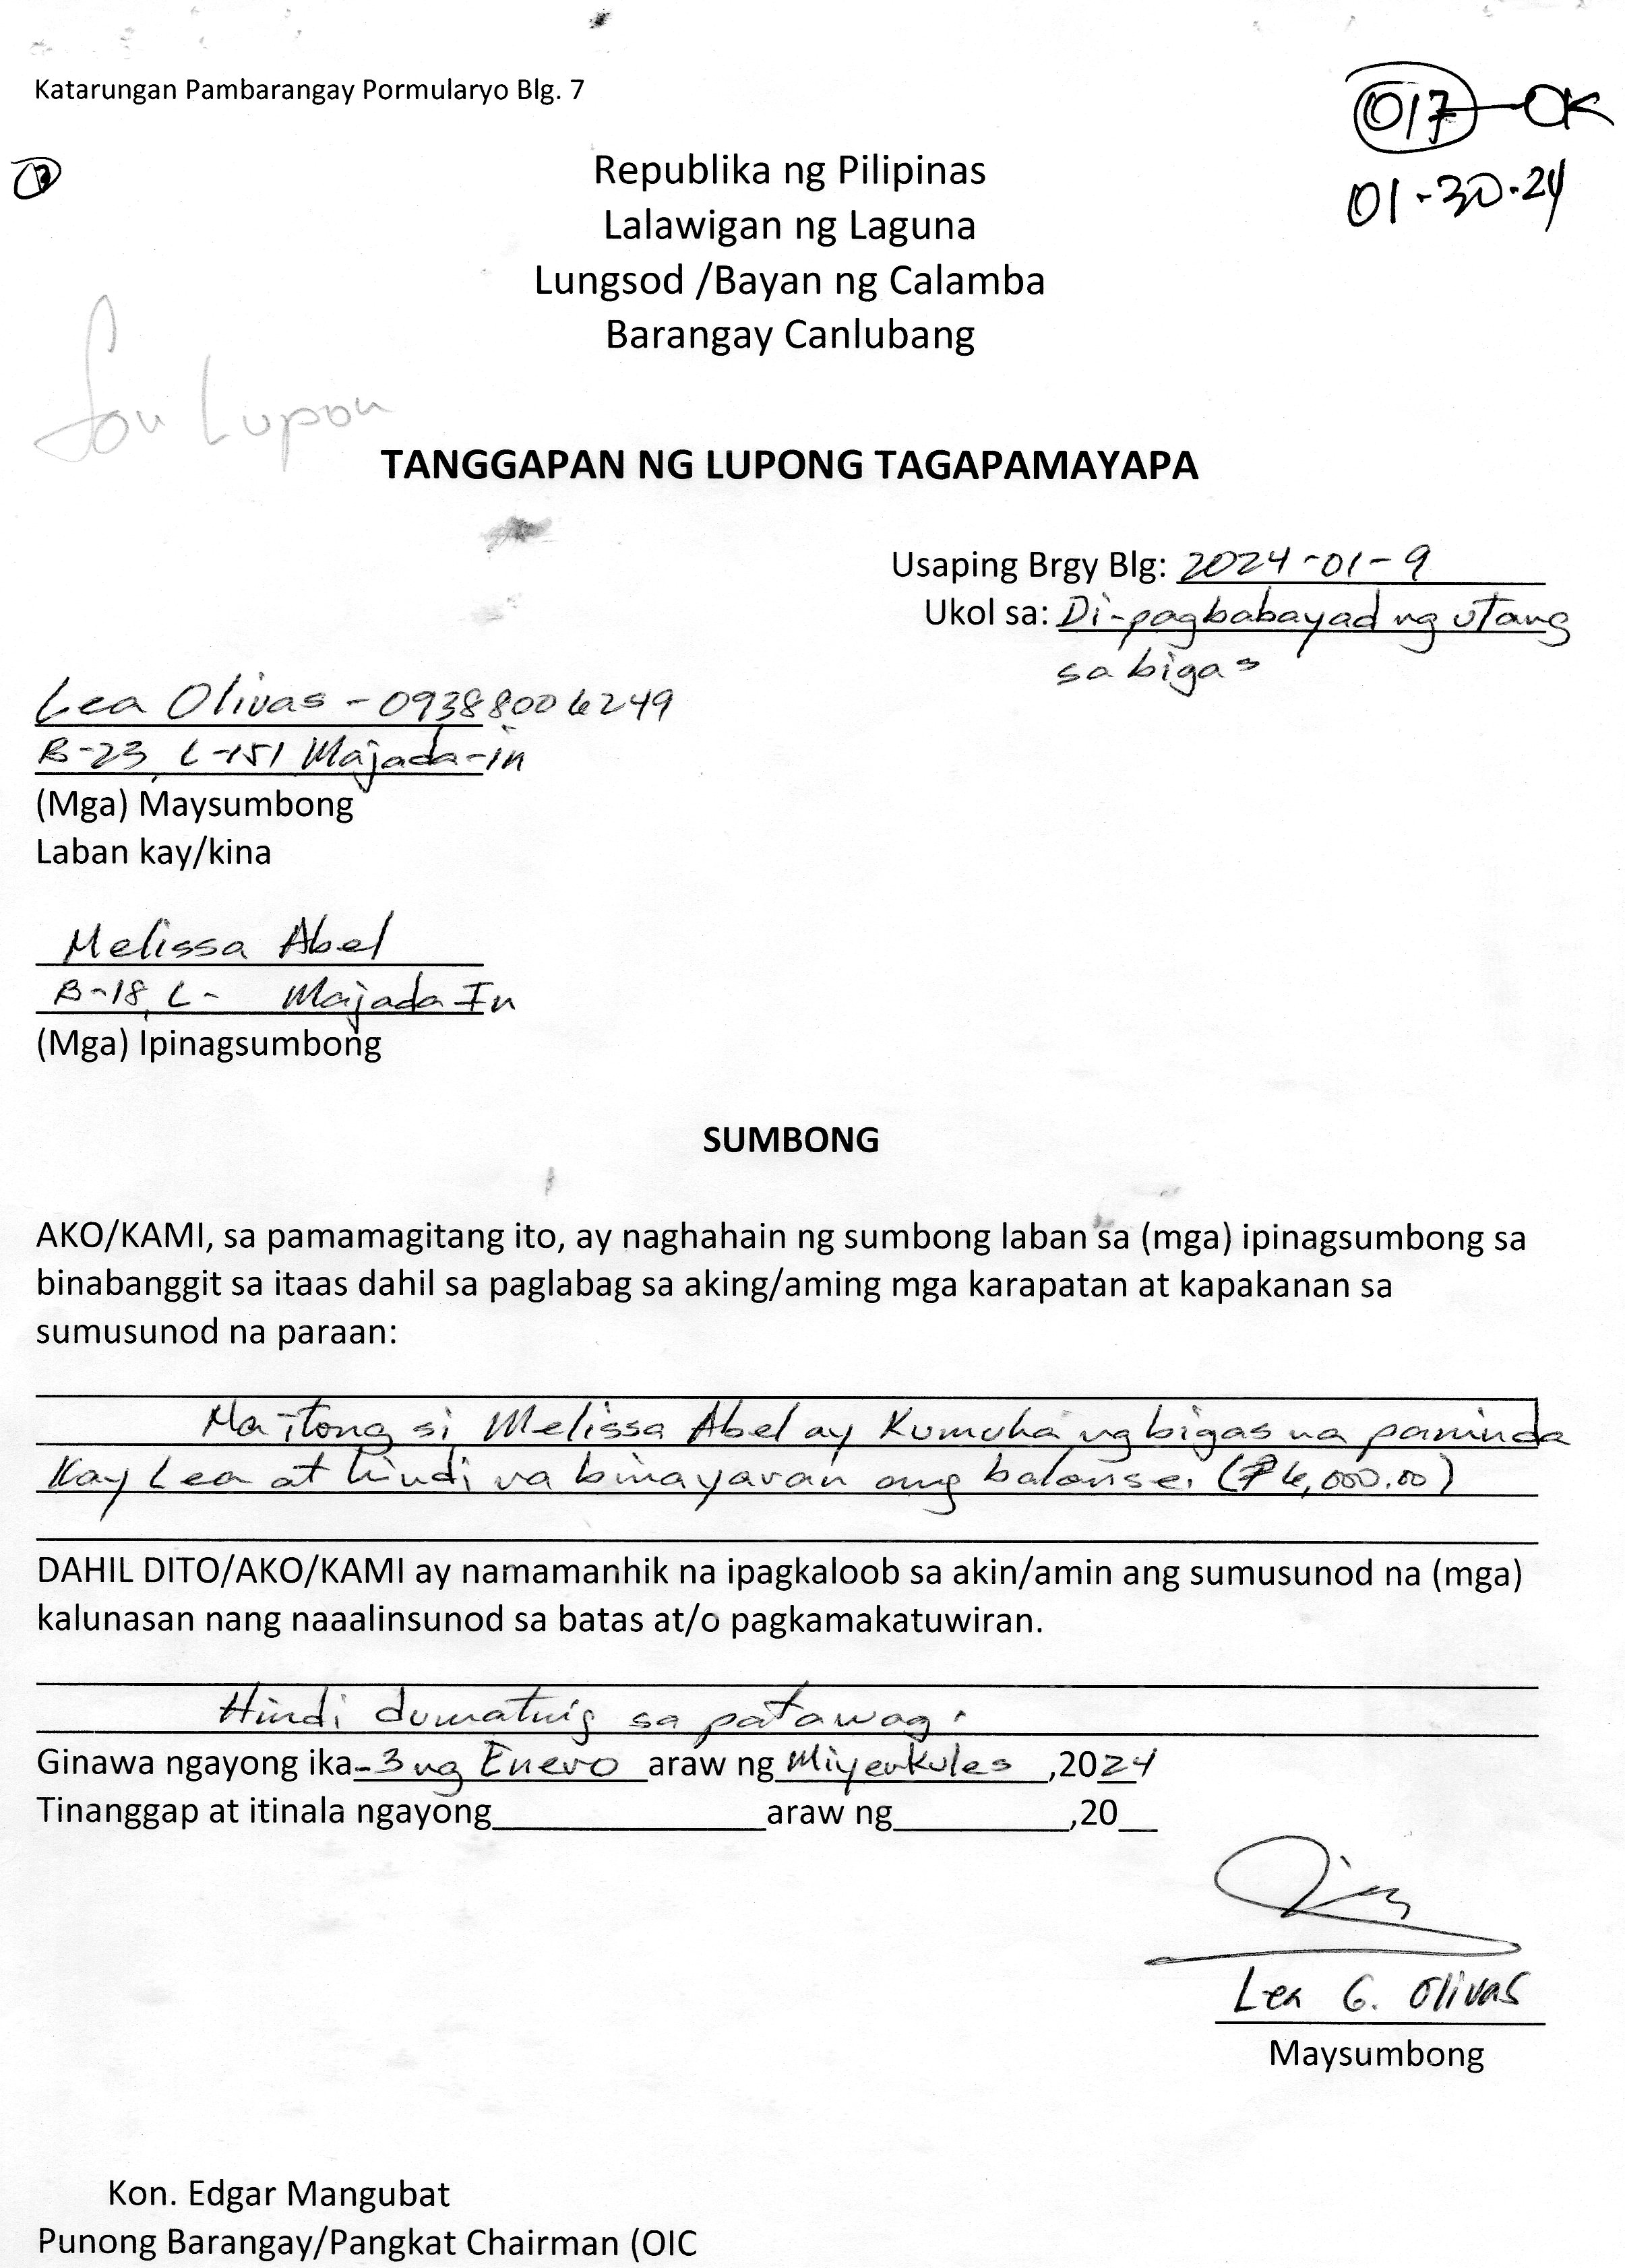 Katarungan Pambarangay Pormularyo Blg. 7
017 - OK
01-30-24
Republika ng Pilipinas
Lalawigan ng Laguna
Lungsod /Bayan ng Calamba
Barangay Canlubang
Lupon
TANGGAPAN NG LUPONG TAGAPAMAYAPA
Usaping Brgy Blg: 2024-01-9
Ukol sa: Di-pagbabayad ng utang
sa bigas
Lea Olivas - 09388006249
B-23, L-151 Majada-in
(Mga) Maysumbong
Laban kay/kina
Melissa Abel
B-18, L- Majada In
(Mga) Ipinagsumbong
SUMBONG
AKO/KAMI, sa pamamagitang ito, ay naghahain ng sumbong laban sa (mga) ipinagsumbong sa
binabanggit sa itaas dahil sa paglabag sa aking/aming mga karapatan at kapakanan sa
sumusunod na paraan:
Na itong si Melissa Abel ay Kumuha ng bigas na paninda
Kay Lea at hindi na binayaran ang balanse. (₱6,000.00)
DAHIL DITO/AKO/KAMI ay namamanhik na ipagkaloob sa akin/amin ang sumusunod na (mga)
kalunasan nang naaalinsunod sa batas at/o pagkamakatuwiran.
Hindi dumating sa patawag.
Ginawa ngayong ika-3 ng Enero araw ng Miyerkules ,2024
Tinanggap at itinala ngayong______________araw ng_________,20__
Lea G. Olivas
Maysumbong
Kon. Edgar Mangubat
Punong Barangay/Pangkat Chairman (OIC